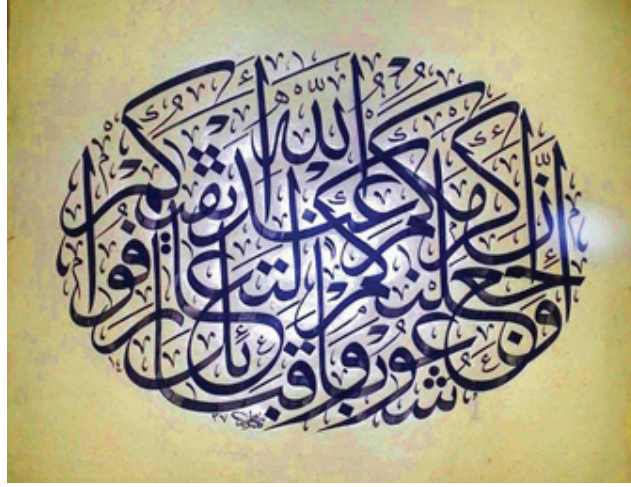 وجعلنكم شعوبا وقبائل لتعارفوا
إن أكرمكم عند الله أتقىكم